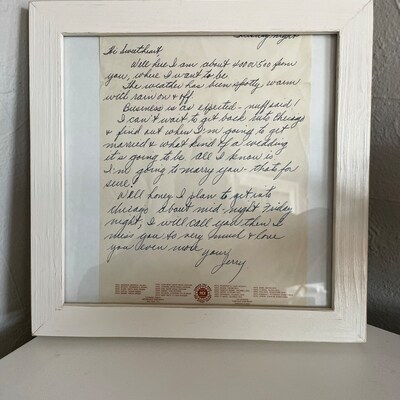 Sunday, night
Hi Sweetheart
Well here I am about 400 or 500 from
you, where I want to be.
The weather has been spotty, warm
with rain on & off.
Business is as expected - nuff said!
I can't wait to get back into Chicago
& find out when I'm going to get
married & what kind of a wedding
it's going to be. All I know is
I'm going to marry you thats for
sure!
Well honey I plan to get into
Chicago about mid-night Friday
night, I will call you then I
miss you so very much & love
you even more
yours
Jerry